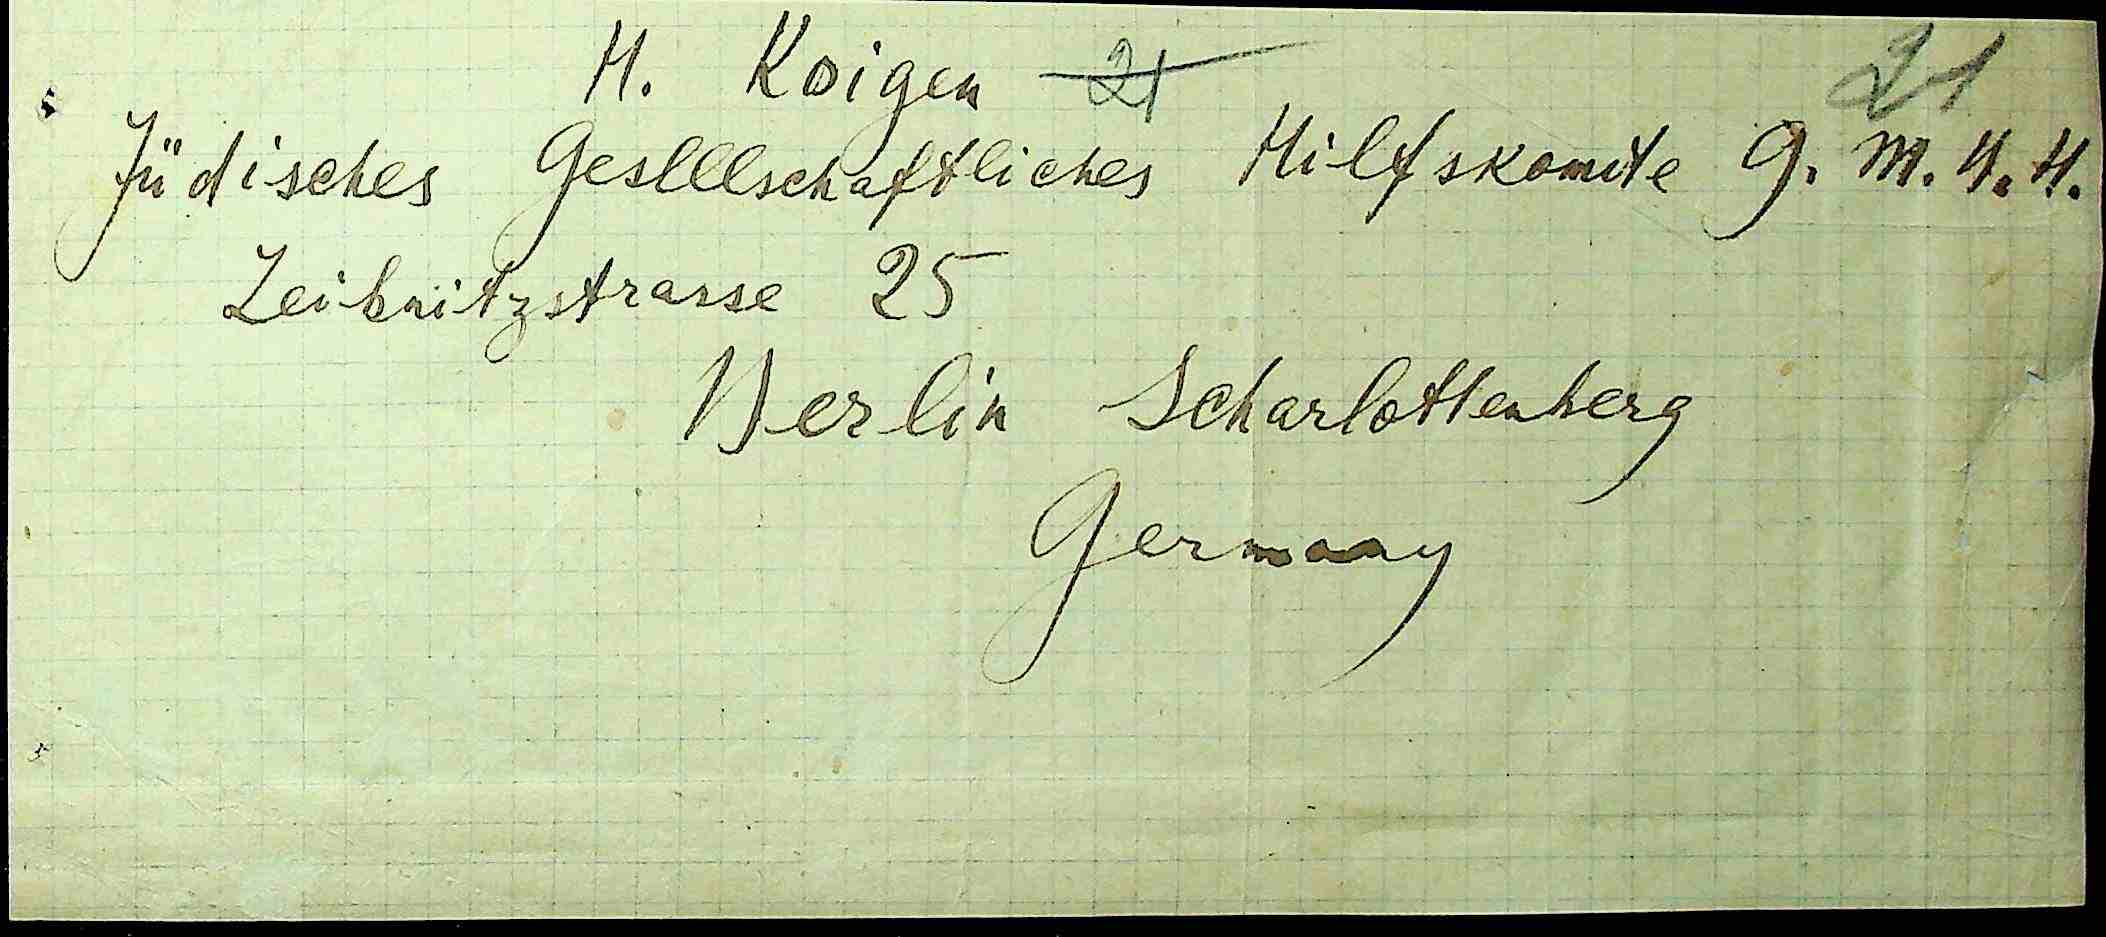 H. Koigen 21 21
Jüdisches Geslllschaftliches Hilfskomite G. M. H. H.
Leibnitzstrasse 25
Berlin Scharlottenberg
Germany